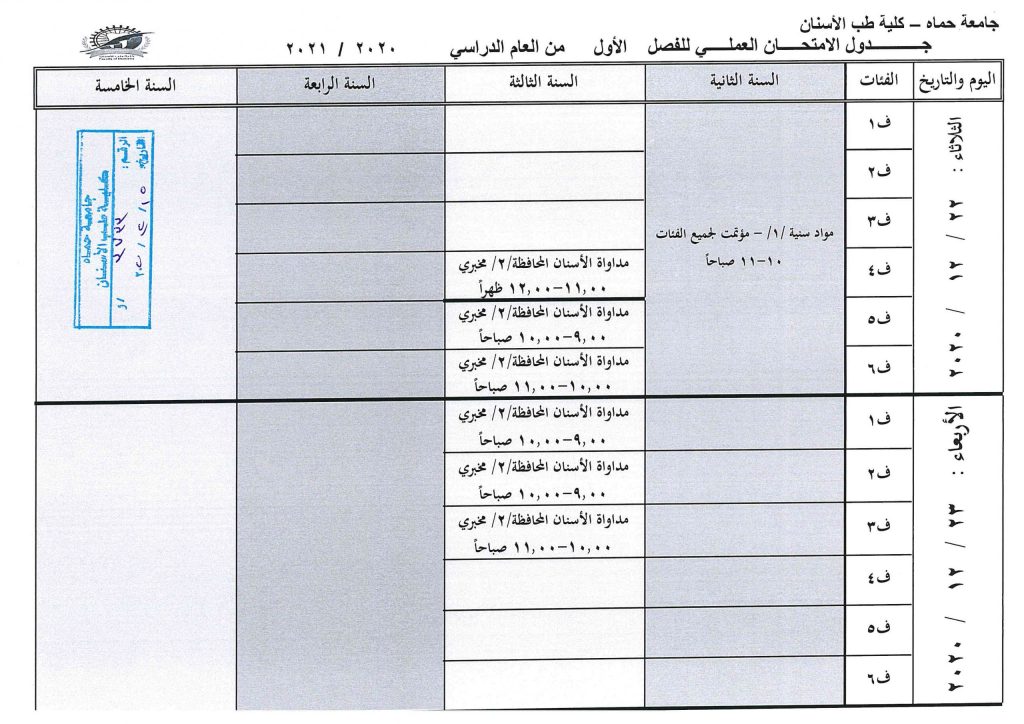 جامعة حماه – كلية طب الأسنان
جـــدول الامتحـــان العملـــي للفصل الأول من العام الدراسي ٢٠٢٠ / ٢٠٢١
اليوم والتاريخ الفئات السنة الثانية السنة الثالثة السنة الرابعة السنة الخامسة
الثلاثاء : ٢٢ / ١٢ / ٢٠٢٠
ف١
ف٢
ف٣
ف٤
ف٥
ف٦
مواد سنية /١/ – مؤتمت لجميع الفئات
١٠–١١ صباحاً
مداواة الأسنان المحافظة/٢/ مخبري
١١,٠٠–١٢,٠٠ ظهراً
مداواة الأسنان المحافظة/٢/ مخبري
٩,٠٠–١٠,٠٠ صباحاً
مداواة الأسنان المحافظة/٢/ مخبري
١٠,٠٠–١١,٠٠ صباحاً
الأربعاء : ٢٣ / ١٢ / ٢٠٢٠
ف١
ف٢
ف٣
ف٤
ف٥
ف٦
مداواة الأسنان المحافظة/٢/ مخبري
٩,٠٠–١٠,٠٠ صباحاً
مداواة الأسنان المحافظة/٢/ مخبري
٩,٠٠–١٠,٠٠ صباحاً
مداواة الأسنان المحافظة/٢/ مخبري
١٠,٠٠–١١,٠٠ صباحاً
جامعة حماه
كلية طب الأسنان
الرقم :
التاريخ